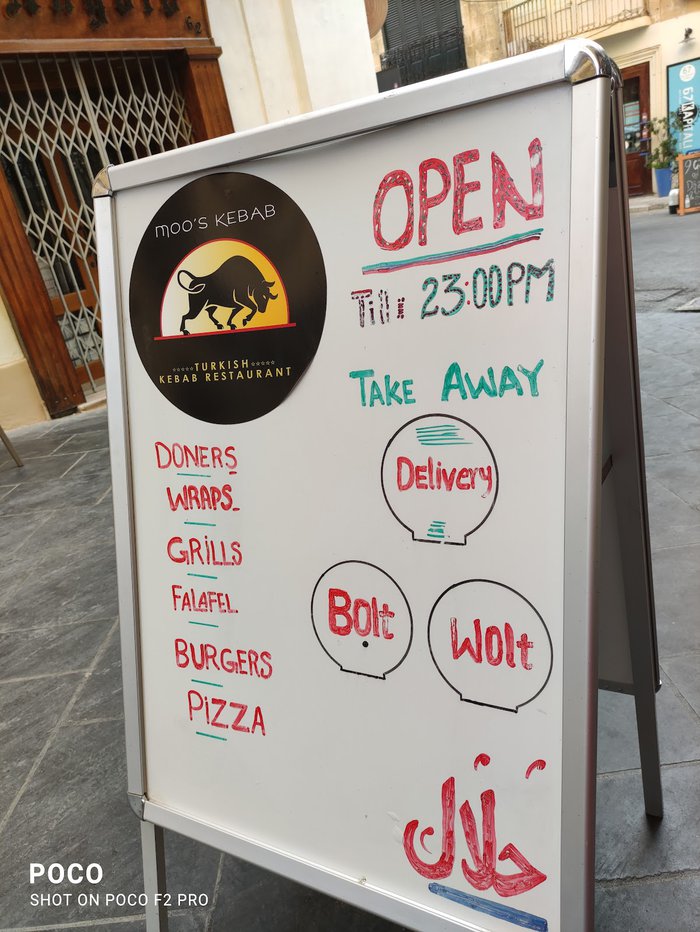 MOO'S KEBAB
TURKISH
KEBAB RESTAURANT
OPEN
Till: 23:00PM
TAKE AWAY
Delivery
Bolt
Wolt
DONERS
WRAPS
GRILLS
FALAFEL
BURGERS
PIZZA
حَلَال
62
POCO
SHOT ON POCO F2 PRO